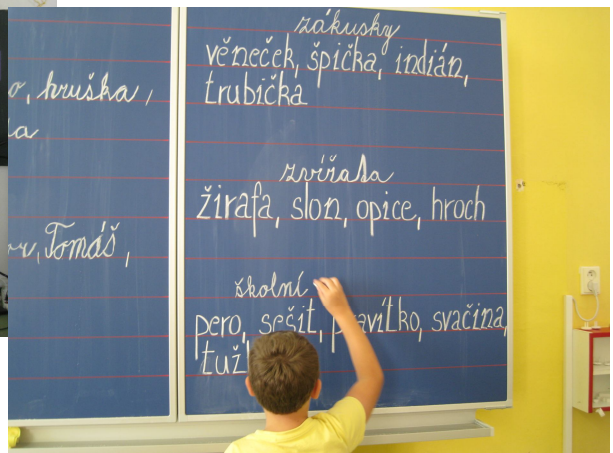 hruška,
Tomáš,
zákusky
věneček, špička, indián,
trubička
zvířata
žirafa, slon, opice, hroch
školní
pero, sešit, pravítko, svačina,